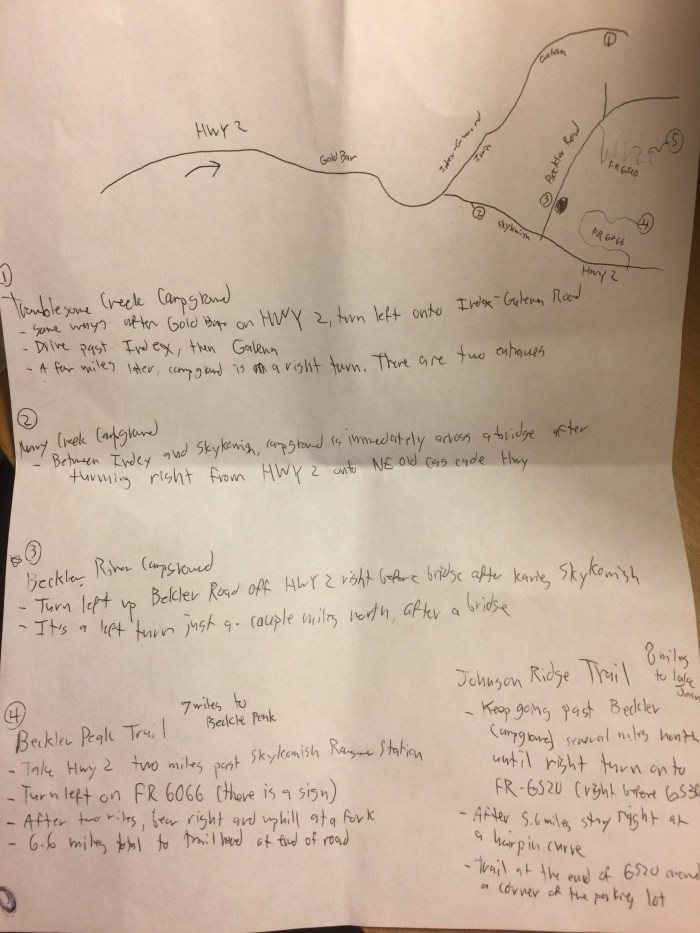 HWY 2
Gold Bar
Index-Galena rd
Index
Galena
1
Beckler Road
3
2
Skykomish
FR 6520
5
4
FR 6066
HWY 2
1
Troublesome Creek Campground
- Some ways after Gold Bar on HWY 2, turn left onto Index-Galena Road
- Drive past Index, then Galena
- A few miles later, campground is a right turn. There are two entrances
2
Money Creek Campground
- Between Index and Skykomish, campground is immediately across a bridge after
turning right from HWY 2 onto NE old cascade Hwy
3
Beckler River Campground
- Turn left up Beckler Road off HWY 2 right before bridge after leaving Skykomish
- It's a left turn just a couple miles north, after a bridge
4
Beckler Peak Trail
7 miles to
Beckler Peak
- Take Hwy 2 two miles past Skykomish Ranger Station
- Turn left on FR 6066 (there is a sign)
- After two miles, bear right and uphill at a fork
- 6.6 miles total to trailhead at end of road
Johnson Ridge Trail
8 miles
to lake
- Keep going past Beckler
Campground several miles north
until right turn onto
FR-6520 (right before 6530
- After 5.6 miles stay right at
a hairpin curve
- Trail at the end of 6520 around
a corner of the parking lot